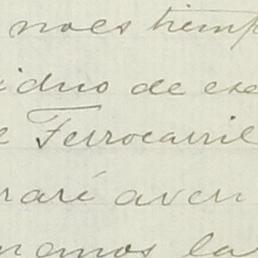 noes tiemp
iduo de ese
e Ferrocarril
raré aven
anos la